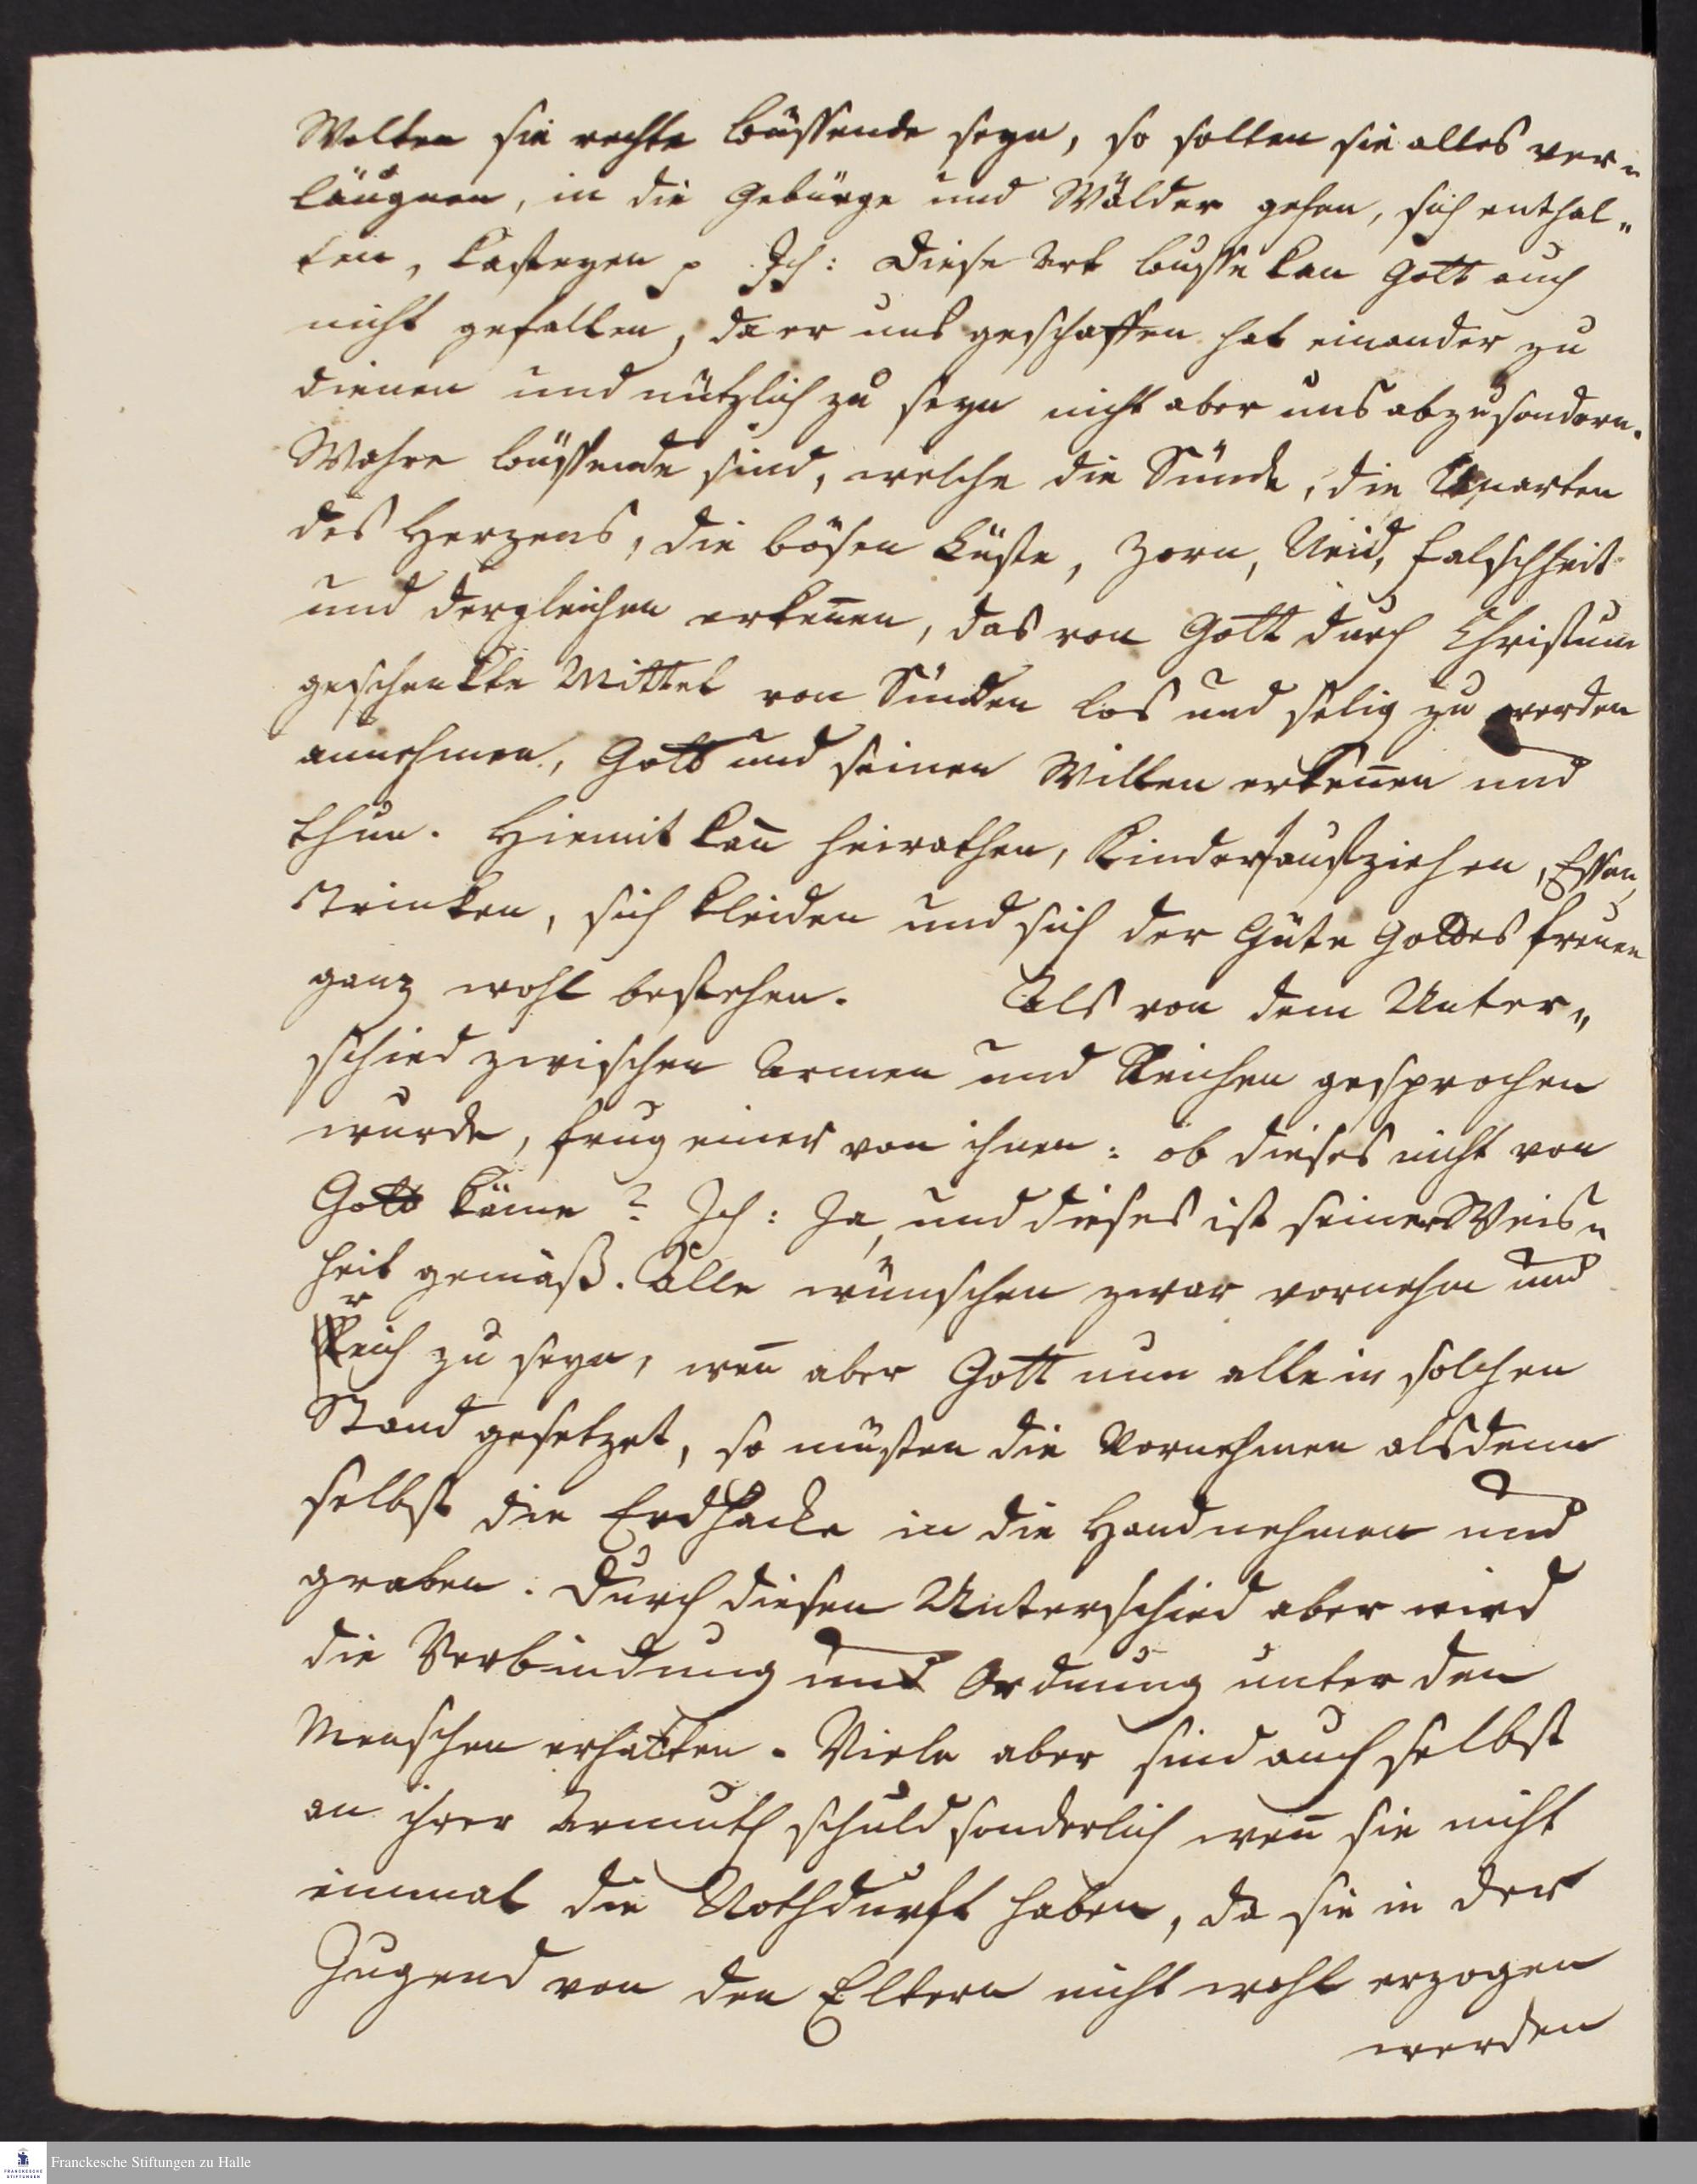 Wolten sie rechte büssende seyn, so solten sie alles ver„
läugnen, in die Gebürge und Wälder gehen, sich enthal„
ten, casteyen p Ich: Diese Art busse kan Gott auch
nicht gefallen, da er uns geschaffen hat einander zu
dienen und nützlich zu seyn nicht aber uns abzusondern.
Wahre büssende sind, welche die Sünde, die Unarten
des Herzens, die bösen Lüste, Zorn, Neid, Falschheit
und dergleichen erkeñen, das von Gott durch Christum
geschenkte Mittel von Sünden los und selig zu werden
annehmen, Gott und seinen Willen erkeñen und
thun. Hiemit kañ heirathen, Kinder aufziehen, Essen,
Trinken, sich kleiden und sich der Güte Gottes freuen
ganz wohl bestehen. Als von dem Unter„
schied zwischen Armen und Reichen gesprochen
wurde, frug einer von ihnen: ob dieses nicht von
Gott käme? Ich: Ja, und dieses ist seiner Weis„
heit gemäß. Alle wünschen zwar vornehm und
reich zu seyn, weñ aber Gott nun alle in solchen
Stand gesetzet, so müsten die Vornehmen alsdenn
selbst die Erdhacke in die Hand nehmen und
graben. Durch diesen Unterschied aber wird
die Verbindung und Ordnung unter den
Menschen erhalten. Viele aber sind auch selbst
an ihrer Armuth schuld sonderlich weñ sie nicht
einmal die Nothdurft haben, da sie in der
Jugend von den Eltern nicht wohl erzogen
werden
FRANCKESCHE
STIFTUNGEN
Franckesche Stiftungen zu Halle